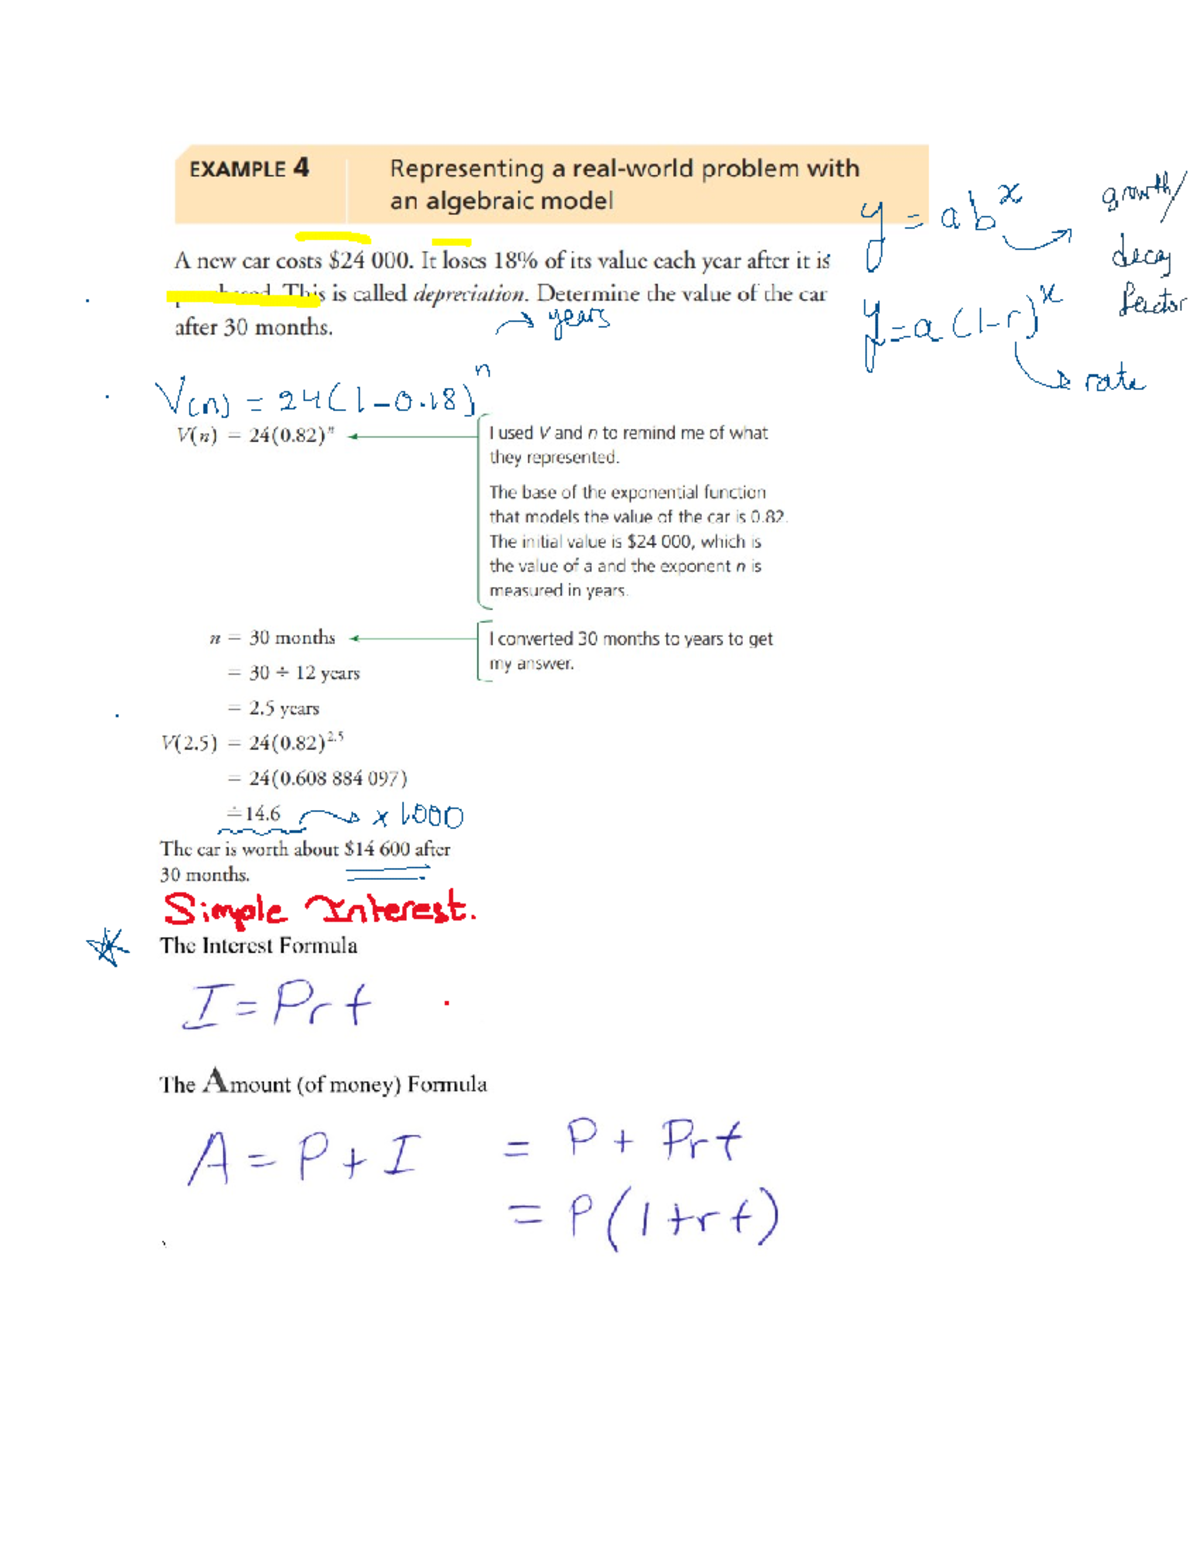 EXAMPLE 4
Representing a real-world problem with
an algebraic model
A new car costs $24 000. It loses 18% of its value each year after it is
This is called depreciation. Determine the value of the car
after 30 months.
years
y = ab^x
growth/
decay
factor
y = a(1-r)^x
rate
V(n) = 24(1-0.18)^n
V(n) = 24(0.82)^n
I used V and n to remind me of what
they represented.
The base of the exponential function
that models the value of the car is 0.82.
The initial value is $24 000, which is
the value of a and the exponent n is
measured in years.
n = 30 months
I converted 30 months to years to get
my answer.
= 30 ÷ 12 years
= 2.5 years
V(2.5) = 24(0.82)^2.5
= 24(0.608 884 097)
≐ 14.6 × 1000
The car is worth about $14 600 after
30 months.
Simple Interest.
The Interest Formula
I = Prt
The Amount (of money) Formula
A = P + I = P + Prt
= P(1+rt)